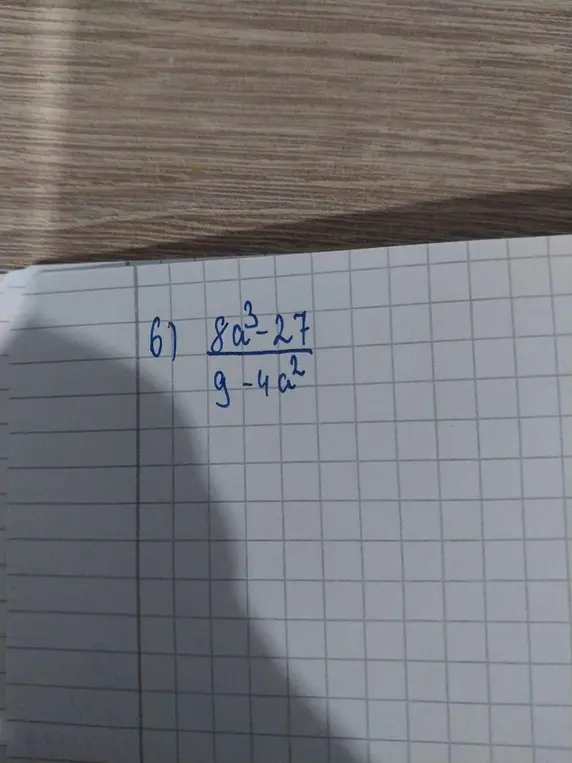 6) 8a³-27
9-4a²